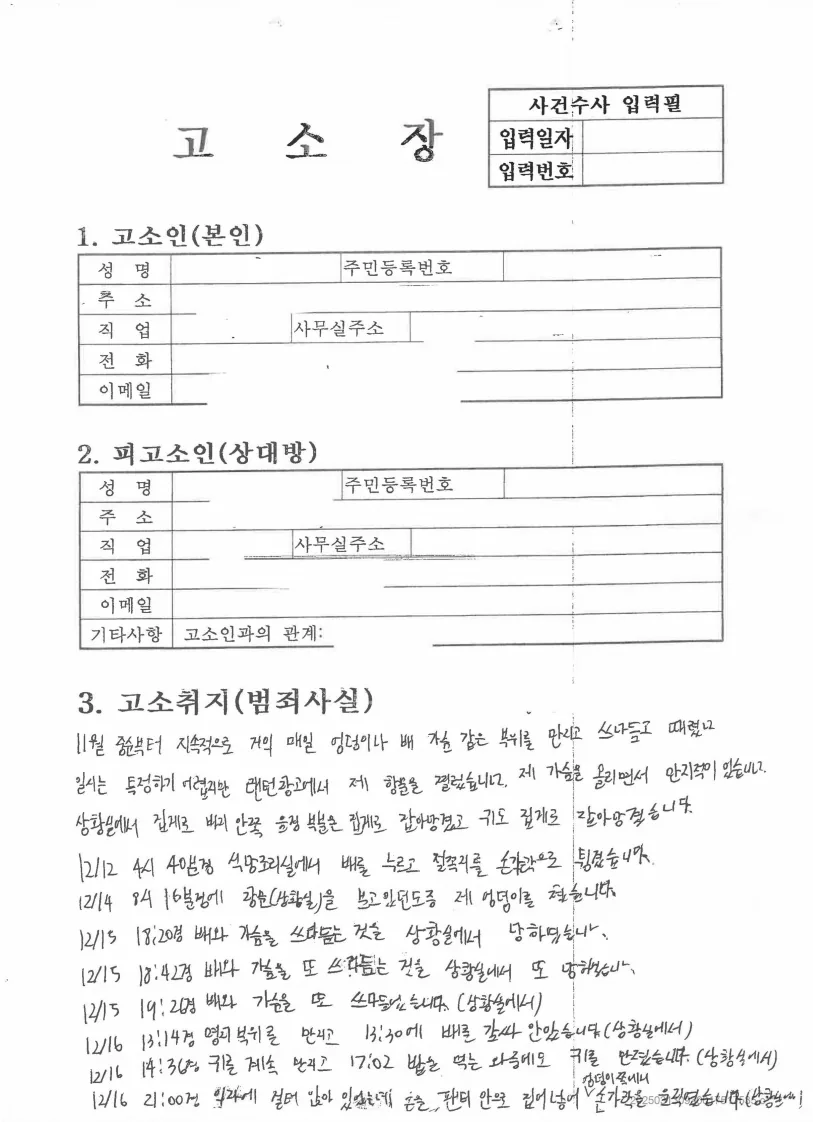 고 소 장
사건수사 입력필
입력일자
입력번호
1. 고소인(본인)
성 명 주민등록번호
주 소
직 업 사무실주소
전 화
이메일
2. 피고소인(상대방)
성 명 주민등록번호
주 소
직 업 사무실주소
전 화
이메일
기타사항 고소인과의 관계:
3. 고소취지(범죄사실)
11월 중순부터 지속적으로 거의 매일 엉덩이나 배 가슴 같은 부위를 만지고 쓰다듬고 때렸고
일시는 특정하기 어렵지만 제 항문을 찔렀습니다. 제 가슴을 올리면서 만지적이 있습니다.
상황실에서 집게로 바지 안쪽 음경 부분을 집게로 잡아당겼고 귀도 집게로 잡아당겼습니다.
12/12 4시 40분경 식당조리실에서 배를 누르고 젖꼭지를 손가락으로 튕겼습니다.
12/14 8시 16분경에 (상황실)을 보고있던도중 제 엉덩이를 쳤습니다.
12/15 18:20경 배와 가슴을 쓰다듬는 것을 상황실에서 당하였습니다.
12/15 18:42경 배와 가슴을 또 쓰다듬는 것을 상황실에서 또 당하였습니다.
12/15 19:26경 배와 가슴을 또 쓰다듬었습니다. (상황실에서)
12/16 13:14경 부위를 만지고 13:30에 배를 감싸 안았습니다.(상황실에서)
12/16 14:36경 귀를 계속 만지고 17:02 밥을 먹는 와중에도 귀를 만졌습니다. (상황실에서)
엉덩이쪽에서
12/16 21:00경 의자에 걸터 앉아 있었는데 손을 팬티 안으로 집어넣어 손가락을 움직였습니다.(상황실에서)